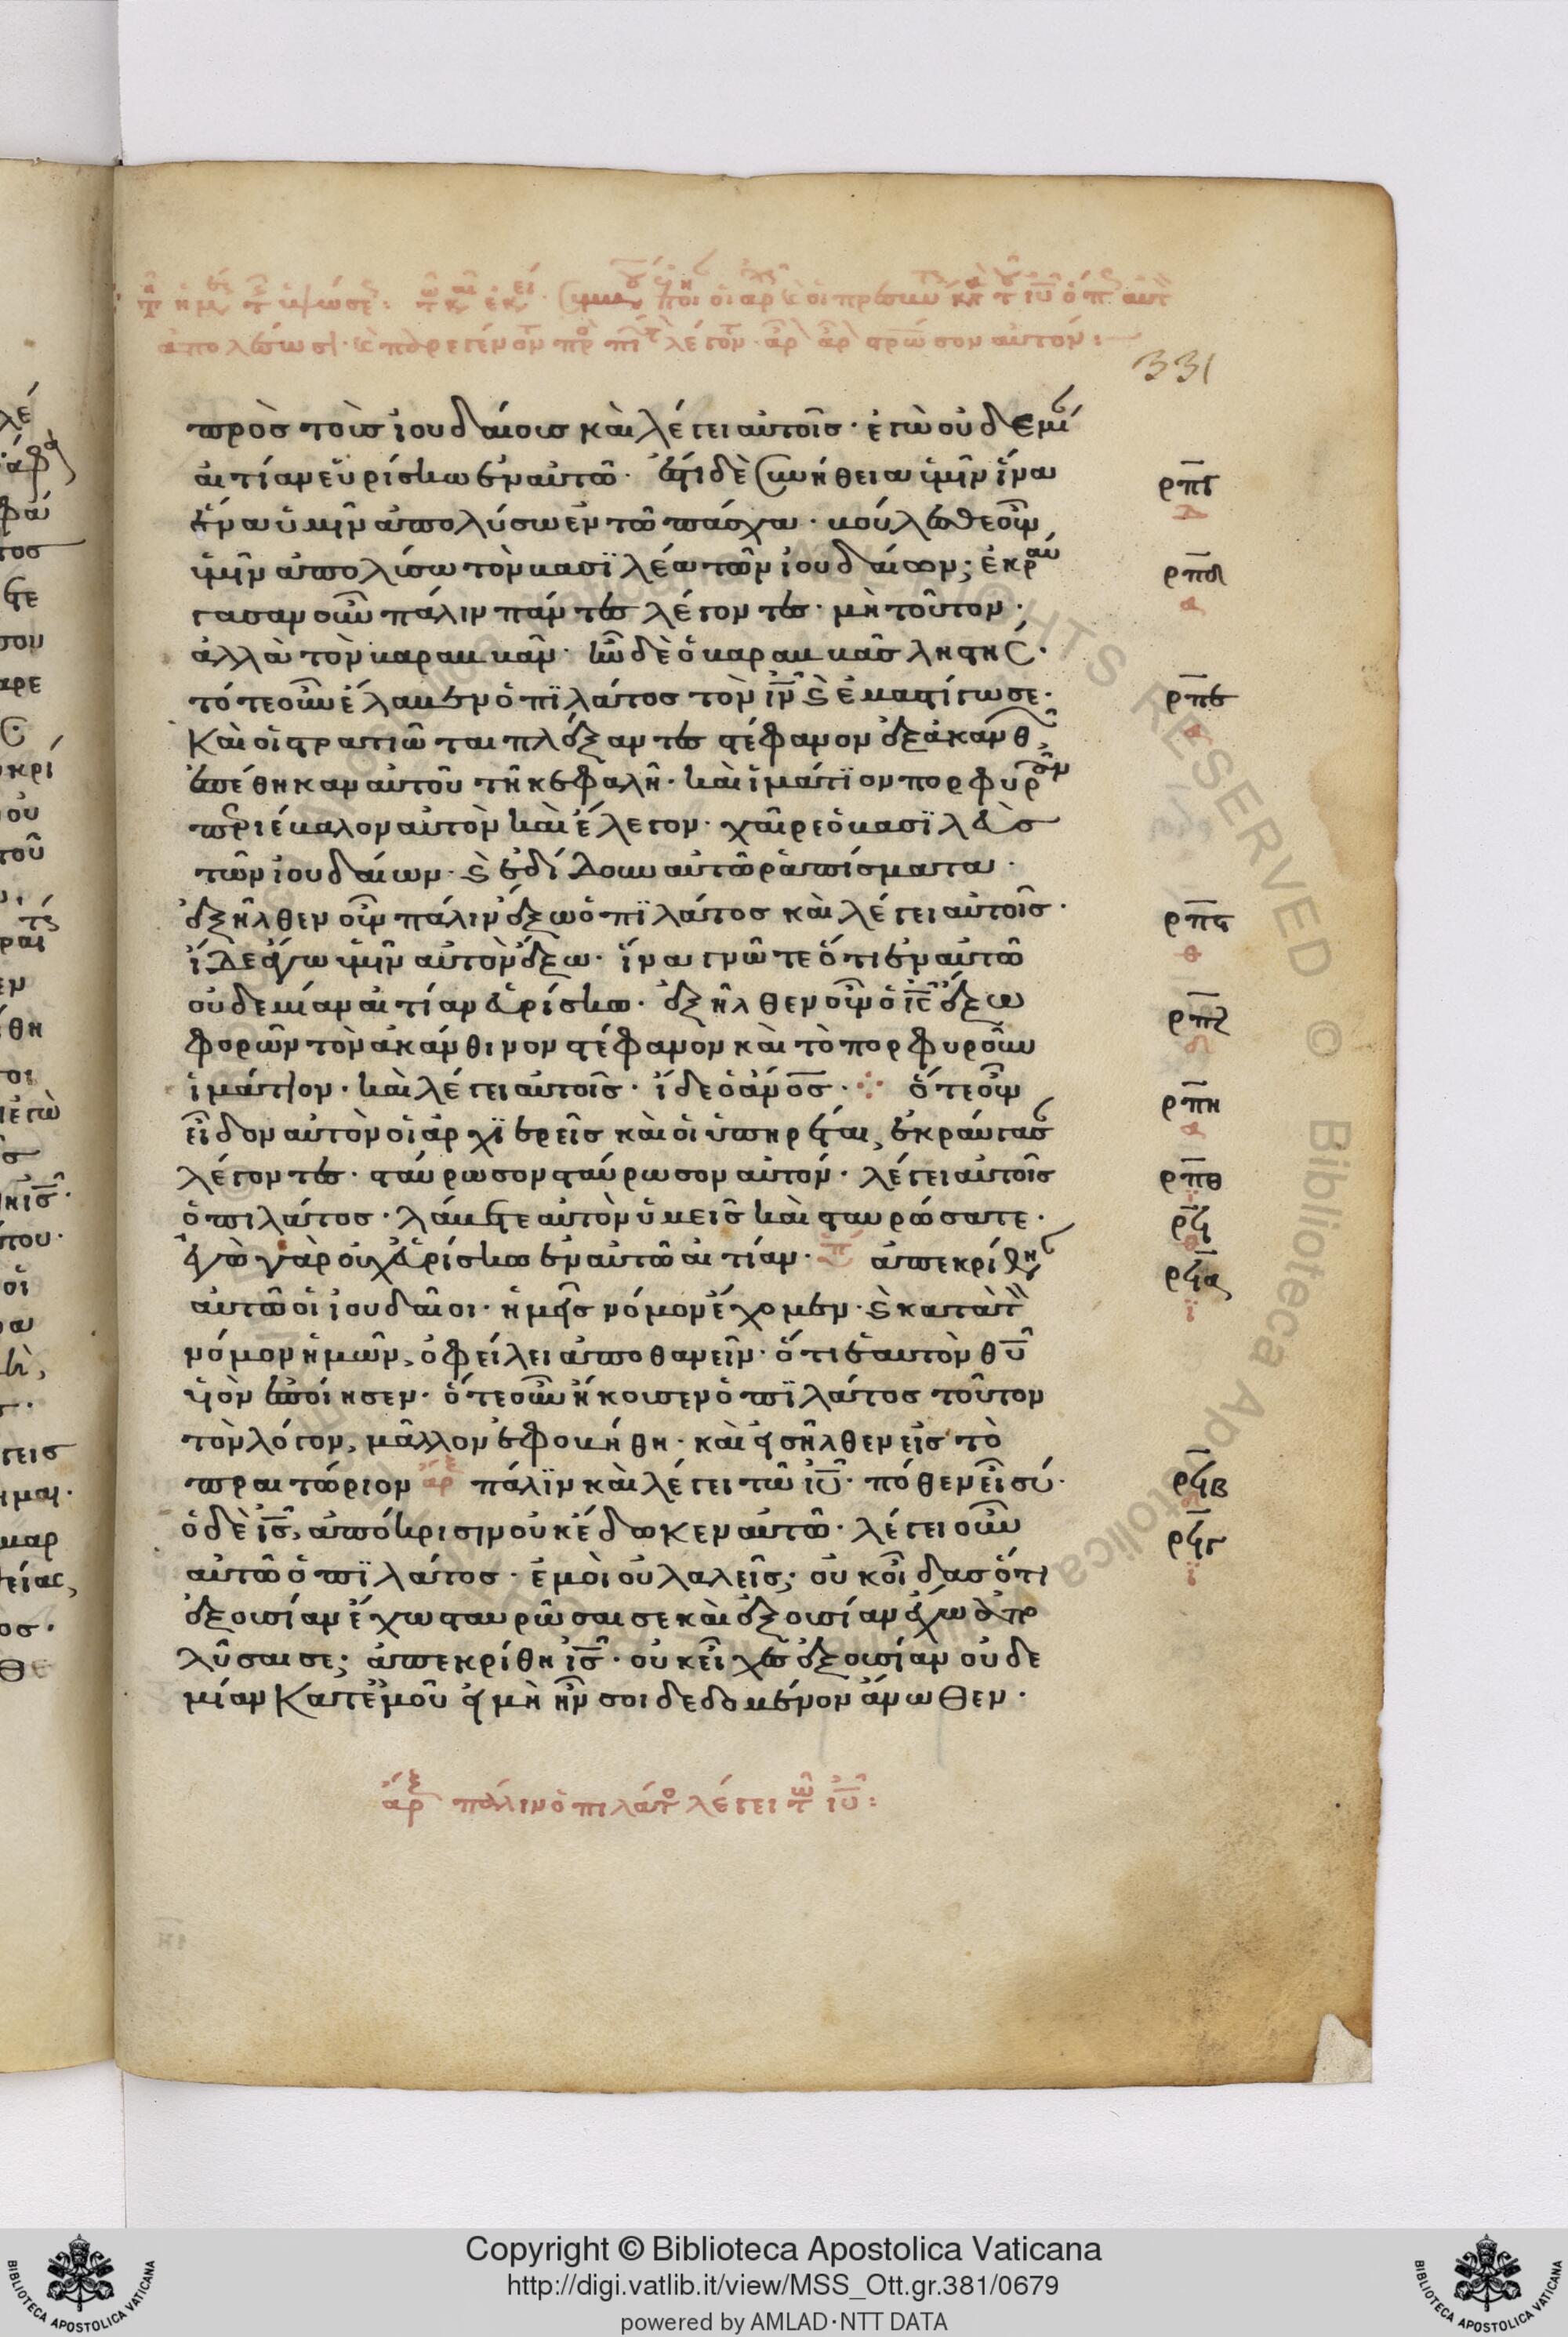 ἀπολέσωσι
αὐτόν:
331
πρὸς τοὺς ἰουδαίους καὶ λέγει αὐτοῖς· ἐγὼ οὐδεμί
αἰτίαν εὑρίσκω ἐν αὐτῶ· ἔστι δὲ συνήθεια ὑμῖν ἵνα
ἕνα ὑμῖν ἀπολύσω ἐν τῶ πάσχα· βούλεσθε οὖν
ρπγ
ὑμῖν ἀπολύσω τὸν βασϊλέα τῶν ἰουδαίων; ἐκραύ
ρπδ
γασαν οὖν πάλιν πάντες λέγοντες· μὴ τοῦτον·
ἀλλὰ τὸν βαραββᾶν· ἦν δὲ ὁ βαραββᾶς ληστής·
τότε οὖν ἔλαβεν ὁ πϊλάτος τὸν ἰν καὶ ἐμαστίγωσε·
ρπε
Καὶ οἱ στρατιῶται πλέξαντες στέφανον ἐξ ἀκανθ
ἐπέθηκαν αὐτοῦ τῆ κεφαλῆ· καὶ ἱμάτϊον πορφυροῦν
περιέβαλον αὐτὸν καὶ ἔλεγον· χαῖρε ὁ βασϊλεὺς
τῶν ἰουδαίων· καὶ ἐδίδουν αὐτῶ ῥαπίσματα·
ἐξῆλθεν οὖν πάλιν ἔξω ὁ πϊλάτος καὶ λέγει αὐτοῖς·
ρπς
ἴδε ἄγω ὑμῖν αὐτὸν ἔξω· ἵνα γνῶτε ὅτι ἐν αὐτῶ
οὐδεμίαν αἰτίαν εὑρίσκω· ἐξῆλθεν οὖν ὁ ις ἔξω
ρπζ
φορῶν τὸν ἀκάνθινον στέφανον καὶ τὸ πορφυροῦν
ἱμάτιον· καὶ λέγει αὐτοῖς· ἴδε ὁ ἄνος· ὅτε οὖν
ρπη
εἶδον αὐτὸν οἱ ἀρχϊερεῖς καὶ οἱ ὑπηρέται, ἐκραύγασ
λέγοντες· σταύρωσον σταύρωσον αὐτόν· λέγει αὐτοῖς
ρπθ
ὁ πιλάτος· λάβετε αὐτὸν ὑμεῖς καὶ σταυρώσατε·
ρϟ
ἐγὼ γὰρ οὐχ εὑρίσκω ἐν αὐτῶ αἰτίαν· ἀπεκρίθη
ρϟα
αὐτῶ οἱ ἰουδαῖοι· ἡμεῖς νόμον ἔχομεν· καὶ κατὰ τ
νόμον ἡμῶν, ὀφείλει ἀποθανεῖν· ὅτι ἑαυτὸν θυ
υἱὸν ἐποίησεν· ὅτε οὖν ἤκουσεν ὁ πϊλάτος τοῦτον
τὸν λόγον, μᾶλλον ἐφοβήθη· καὶ εἰσῆλθεν εἰς τὸ
πραιτώριον ἀρξ πάλϊν καὶ λέγει τῶ ιυ· πόθεν εἶ σύ·
ρϟβ
ὁ δὲ ις, ἀπόκρισιν οὐκ ἔδωκεν αὐτῶ· λέγει οὖν
ρϟγ
αὐτῶ ὁ πϊλάτος· ἐμοὶ οὐ λαλεῖς; οὐκ οἶδας ὅτι
ἐξουσίαν ἔχω σταυρῶσαι σε καὶ ἐξουσίαν ἔχω ἀπο
λῦσαι σε; ἀπεκρίθη ις· οὐκ εἶχες ἐξουσίαν οὐδε
μίαν κατ' ἐμοῦ εἰ μὴ ἦν σοι δεδομένον ἄνωθεν·
ἀρξ πάλιν ὁ πιλάτο λέγει τῶ ιυ:
Copyright © Biblioteca Apostolica Vaticana
http://digi.vatlib.it/view/MSS_Ott.gr.381/0679
powered by AMLAD·NTT DATA